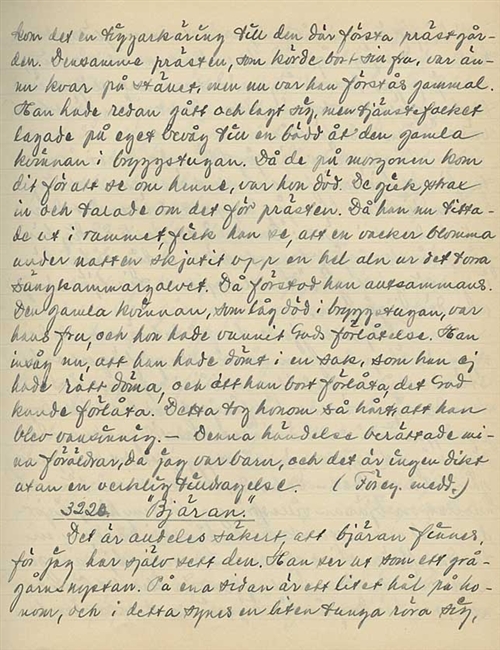 kom det en tiggarkäring till den där första prästgår-
den. Densamme prästen, som körde bort sin fru, var än-
nu kvar på stället, men nu var han förstås gammal.
Han hade redan gått och lagt sig, men tjänstefolket
lagade på eget bevåg till en bädd åt den gamla
kvinnan i bryggstugan. Då de på morgonen kom
dit för att se om henne, var hon död. De gick strax
in och talade om det för prästen. Då han nu titta-
de ut i rummet, fick han se, att en vacker blomma
under natten skjutit upp en hel aln ur det torra
sängkammargolvet. Då förstod han autsammans.
Den gamla kvinnan, som låg död i bryggstugan, var
hans fru, och hon hade vunnit Guds förlåtelse. Han
insåg nu, att han hade dömt i en sak, som han ej
hade rätt döma, och att han bort förlåta, det Gud
kunde förlåta. Detta tog honom så hårt, att han
blev vansinnig. — Denna händelse berättade mi-
na föräldrar, då jag var barn, och det är ingen dikt
utan en verklig tilldragelse. (Föreg. medd.)
3220. "Bjäran."
Det är andeles säkert, att bjäran finnes,
för jag har själv sett den. Han ser ut som ett grå-
garnsnystan. På ena sidan är ett litet hål på ho-
nom, och i detta synes en liten tunga röra sig,